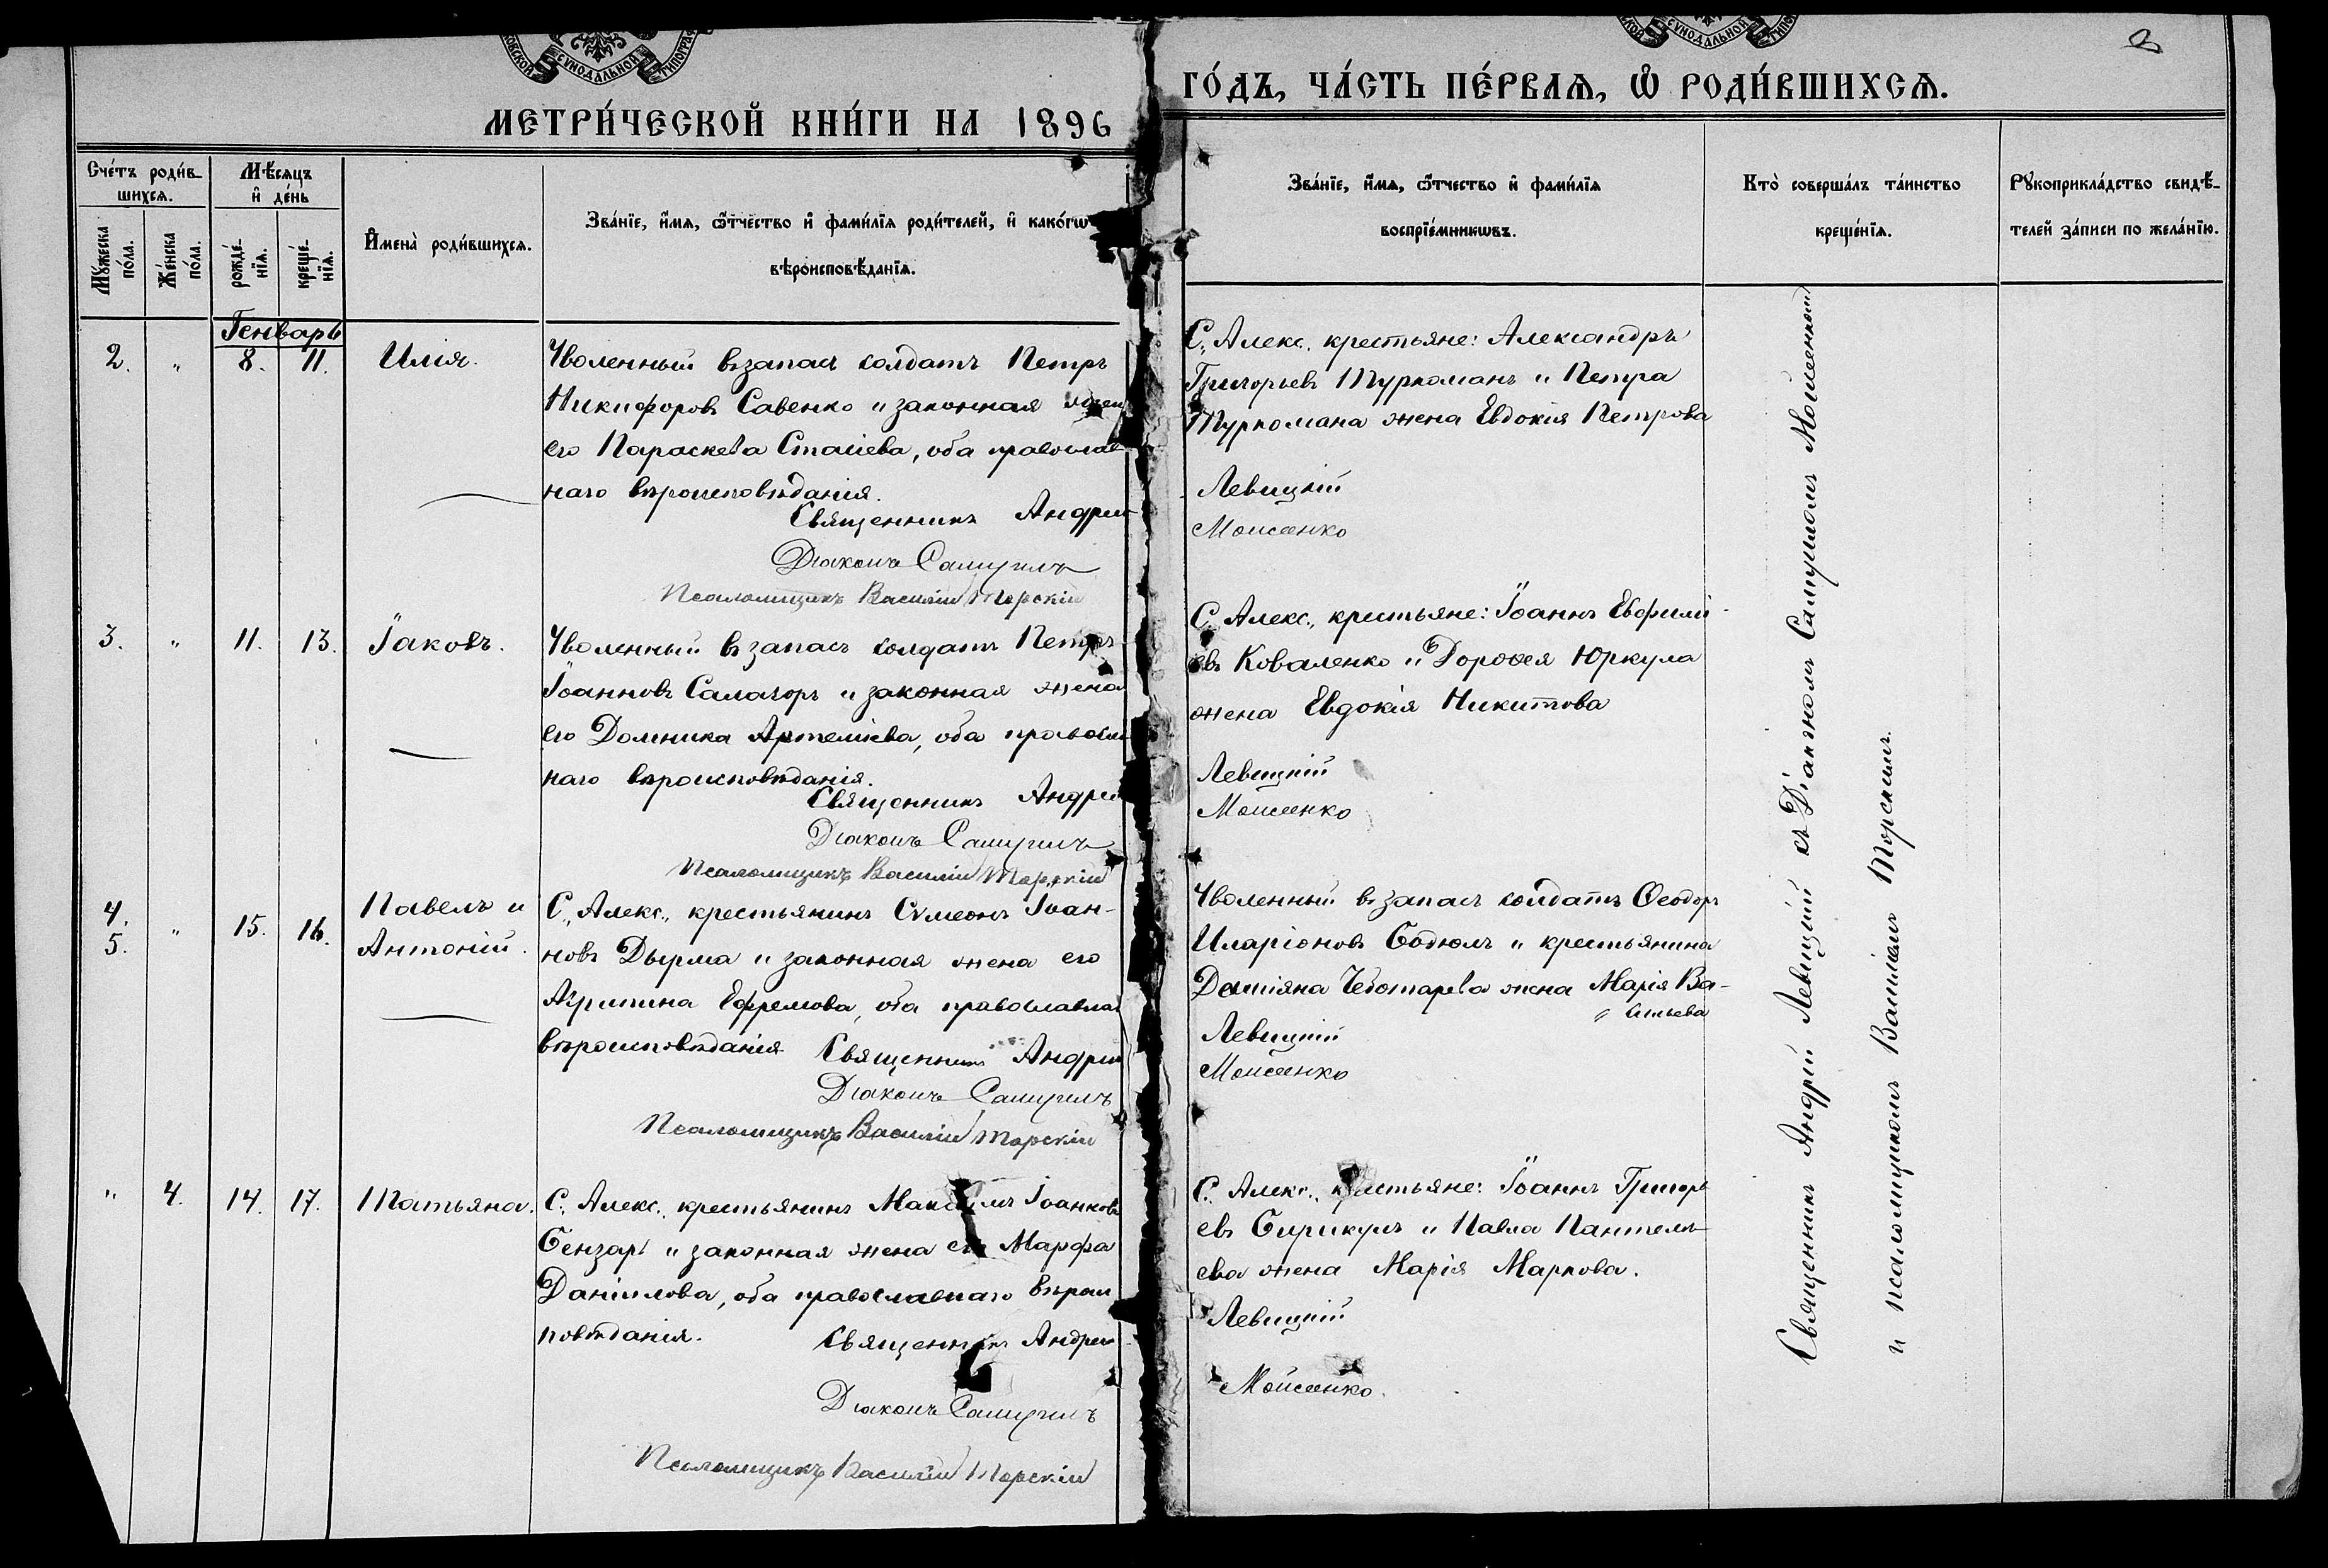 МЕТРИ́ЧЕСКОЙ КНИ́ГИ НА 1896
ГО́ДЪ, ЧА́СТЬ ПЕ́РВАѦ, Ѡ РОДИ́ВШИХСѦ.
2
Сче́тъ роди́в-
шихсѧ.
Мꙋ́жеска
по́ла.
Же́нска
по́ла.
Мѣ́сяцъ
и де́нь
рожде́-
нїѧ.
креще́-
нїѧ.
И҆мена̀ роди́вшихсѧ.
Зва́нїе, и҆́мѧ, ѻ҆́тчество и҆ фами́лїѧ роди́телей, и҆ како́гѡ
вѣроисповѣ́данїѧ.
Зва́нїе, и҆́мѧ, ѻ҆́тчество и҆ фами́лїѧ
воспрїе́мникѡвъ.
Кто̀ соверша́лъ та́инство
креще́нїѧ.
Рꙋкоприкла́дство свидѣ́-
телей за́писи по жела́нїю.
Генварь
2. " 8. 11. Илія.
Уволенный въ запасъ солдатъ Петръ
Никифоровъ Савенко и законная жена
его Параскева Стасіева, оба православ
наго вѣроисповѣданія.
Священникъ Андрей
Діаконъ Самуилъ
Псаломщикъ Василій Торскій
С. Алекс. крестьяне: Александръ
Григорьевъ Туркоманъ и Петра
Туркомана жена Евдокія Петрова
Левицкій
Моисеенко
3. " 11. 13. Іаковъ.
Уволенный въ запасъ солдатъ Петръ
Іоанновъ Салагоръ и законная жена
его Домника Артеміева, оба правосла
наго вѣроисповѣданія.
Священникъ Андрей
Діаконъ Самуилъ
Псаломщикъ Василій Торскій
С. Алекс., крестьяне: Іоаннъ Евфимі-
евъ Коваленко и Дороѳея Юркула
жена Евдокія Никитова
Левицкій
Моисеенко
4.
5. " 15. 16. Павелъ и
Антоній.
С. Алекс., крестьянинъ Сѵмеонъ Іоан-
новъ Дырма и законная жена его
Агрипина Ефремова, оба православнаг
вѣроисповѣданія
Священникъ Андрей
Діаконъ Самуилъ
Псаломщикъ Василій Торскій
Уволенный въ запасъ солдатъ Ѳеодоръ
Иларіоновъ Бодюлъ и крестьянина
Даміяна Чеботарева жена Марія Ва-
сильева
Левицкій
Моисеенко
" 4. 14. 17. Татьяна.
С. Алекс. крестьянинъ Максимъ Іоанновъ
Бензарь и законная жена его Марфа
Даніилова, оба православнаго вѣроис
повѣданія.
Священникъ Андрей
Діаконъ Самуилъ
Псаломщикъ Василій Торскій
С. Алекс., крестьяне: Іоаннъ Григорь
евъ Бирикулъ и Павла Пантеле-
ева жена Марія Маркова.
Левицкій
Моисеенко
Священникъ Андрей Левицкій съ Діакономъ Самуиломъ Моисеенкомъ
и псаломщикомъ Василіемъ Торскимъ.